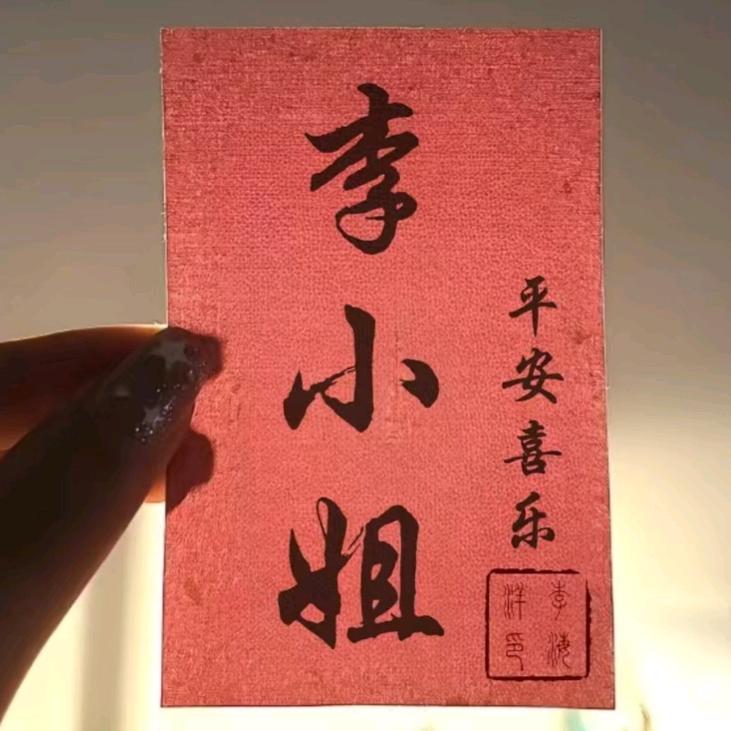 李小姐
平安喜乐
李海洋印